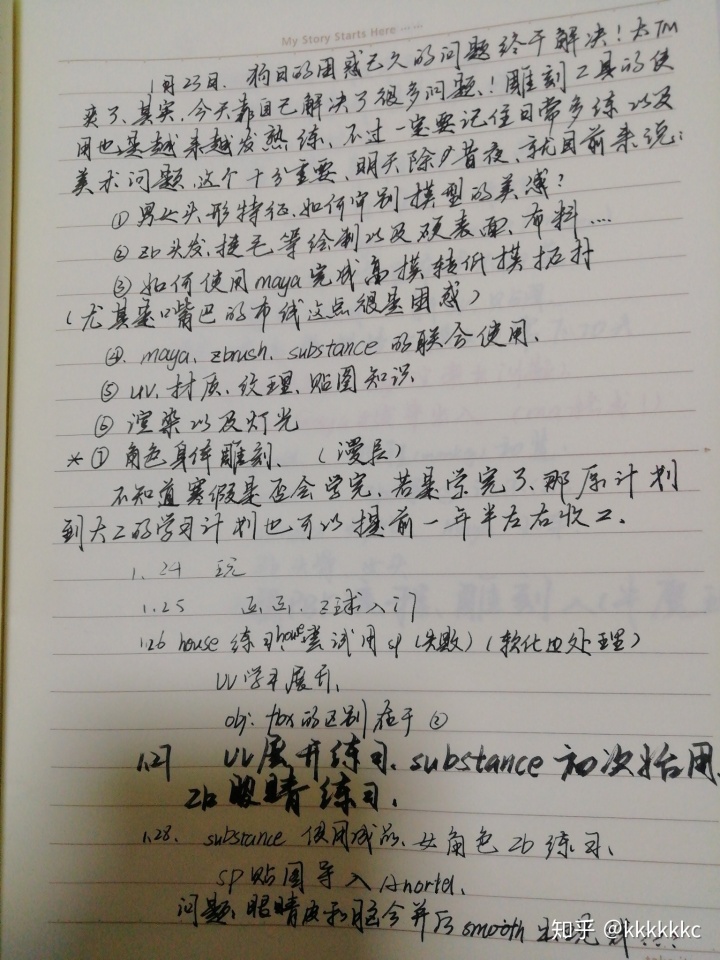 My Story Starts Here ······
1月23日. 狗日的困惑已久的问题终于解决！太TM
爽了、其实、今天靠自己解决了很多问题、！雕刻工具的使
用也是越来越发熟练、不过一定要记住日常多练以及
美术问题、这个十分重要、明天除夕昔夜、就目前来说：
① 男女头形特征、如何审别模型的美感？
② zb头发、捷毛等绘制以及硬表面、布料....
③ 如何使用maya完成高模转低模拓扑
（尤其是嘴巴的布线这点很是困惑）
④. maya、zbrush、substance的联合使用、
⑤ uv、材质、纹理、贴图知识、
⑥ 渲染以及灯光
* ⑦ 角色身体雕刻、（漫长）
不知道寒假是否会学完、若是学完了、那原计划
到大二的学习计划也可以提前一年半左右收工、
1.24 玩
1.25 玩、Z球入门
1.26 house 练习 house 尝试用sp（失败）（软化边处理）
UV学半展开、
obj. fbx的区别在于②
1.27 UV展开练习、substance初次始用、
zb眼睛练习、
1.28. substance使用成品、女角色zb练习、
sp贴图导入
问题、眼睛皮和脑合并后smooth出现
知乎 @kkkkkkc